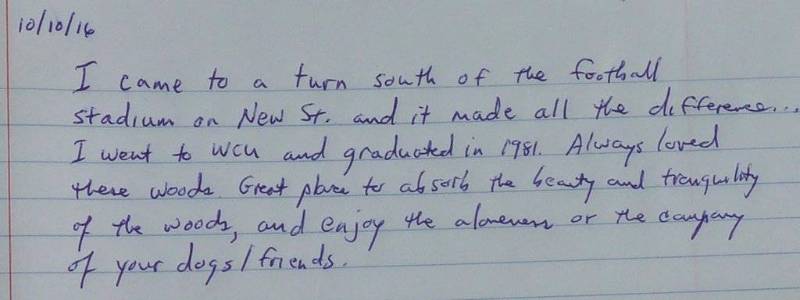 10/10/16
I came to a turn south of the football
stadium on New St. and it made all the difference...
I went to WCU and graduated in 1981. Always loved
these woods. Great place to absorb the beauty and tranquility
of the woods, and enjoy the aloneness or the company
of your dogs/friends.